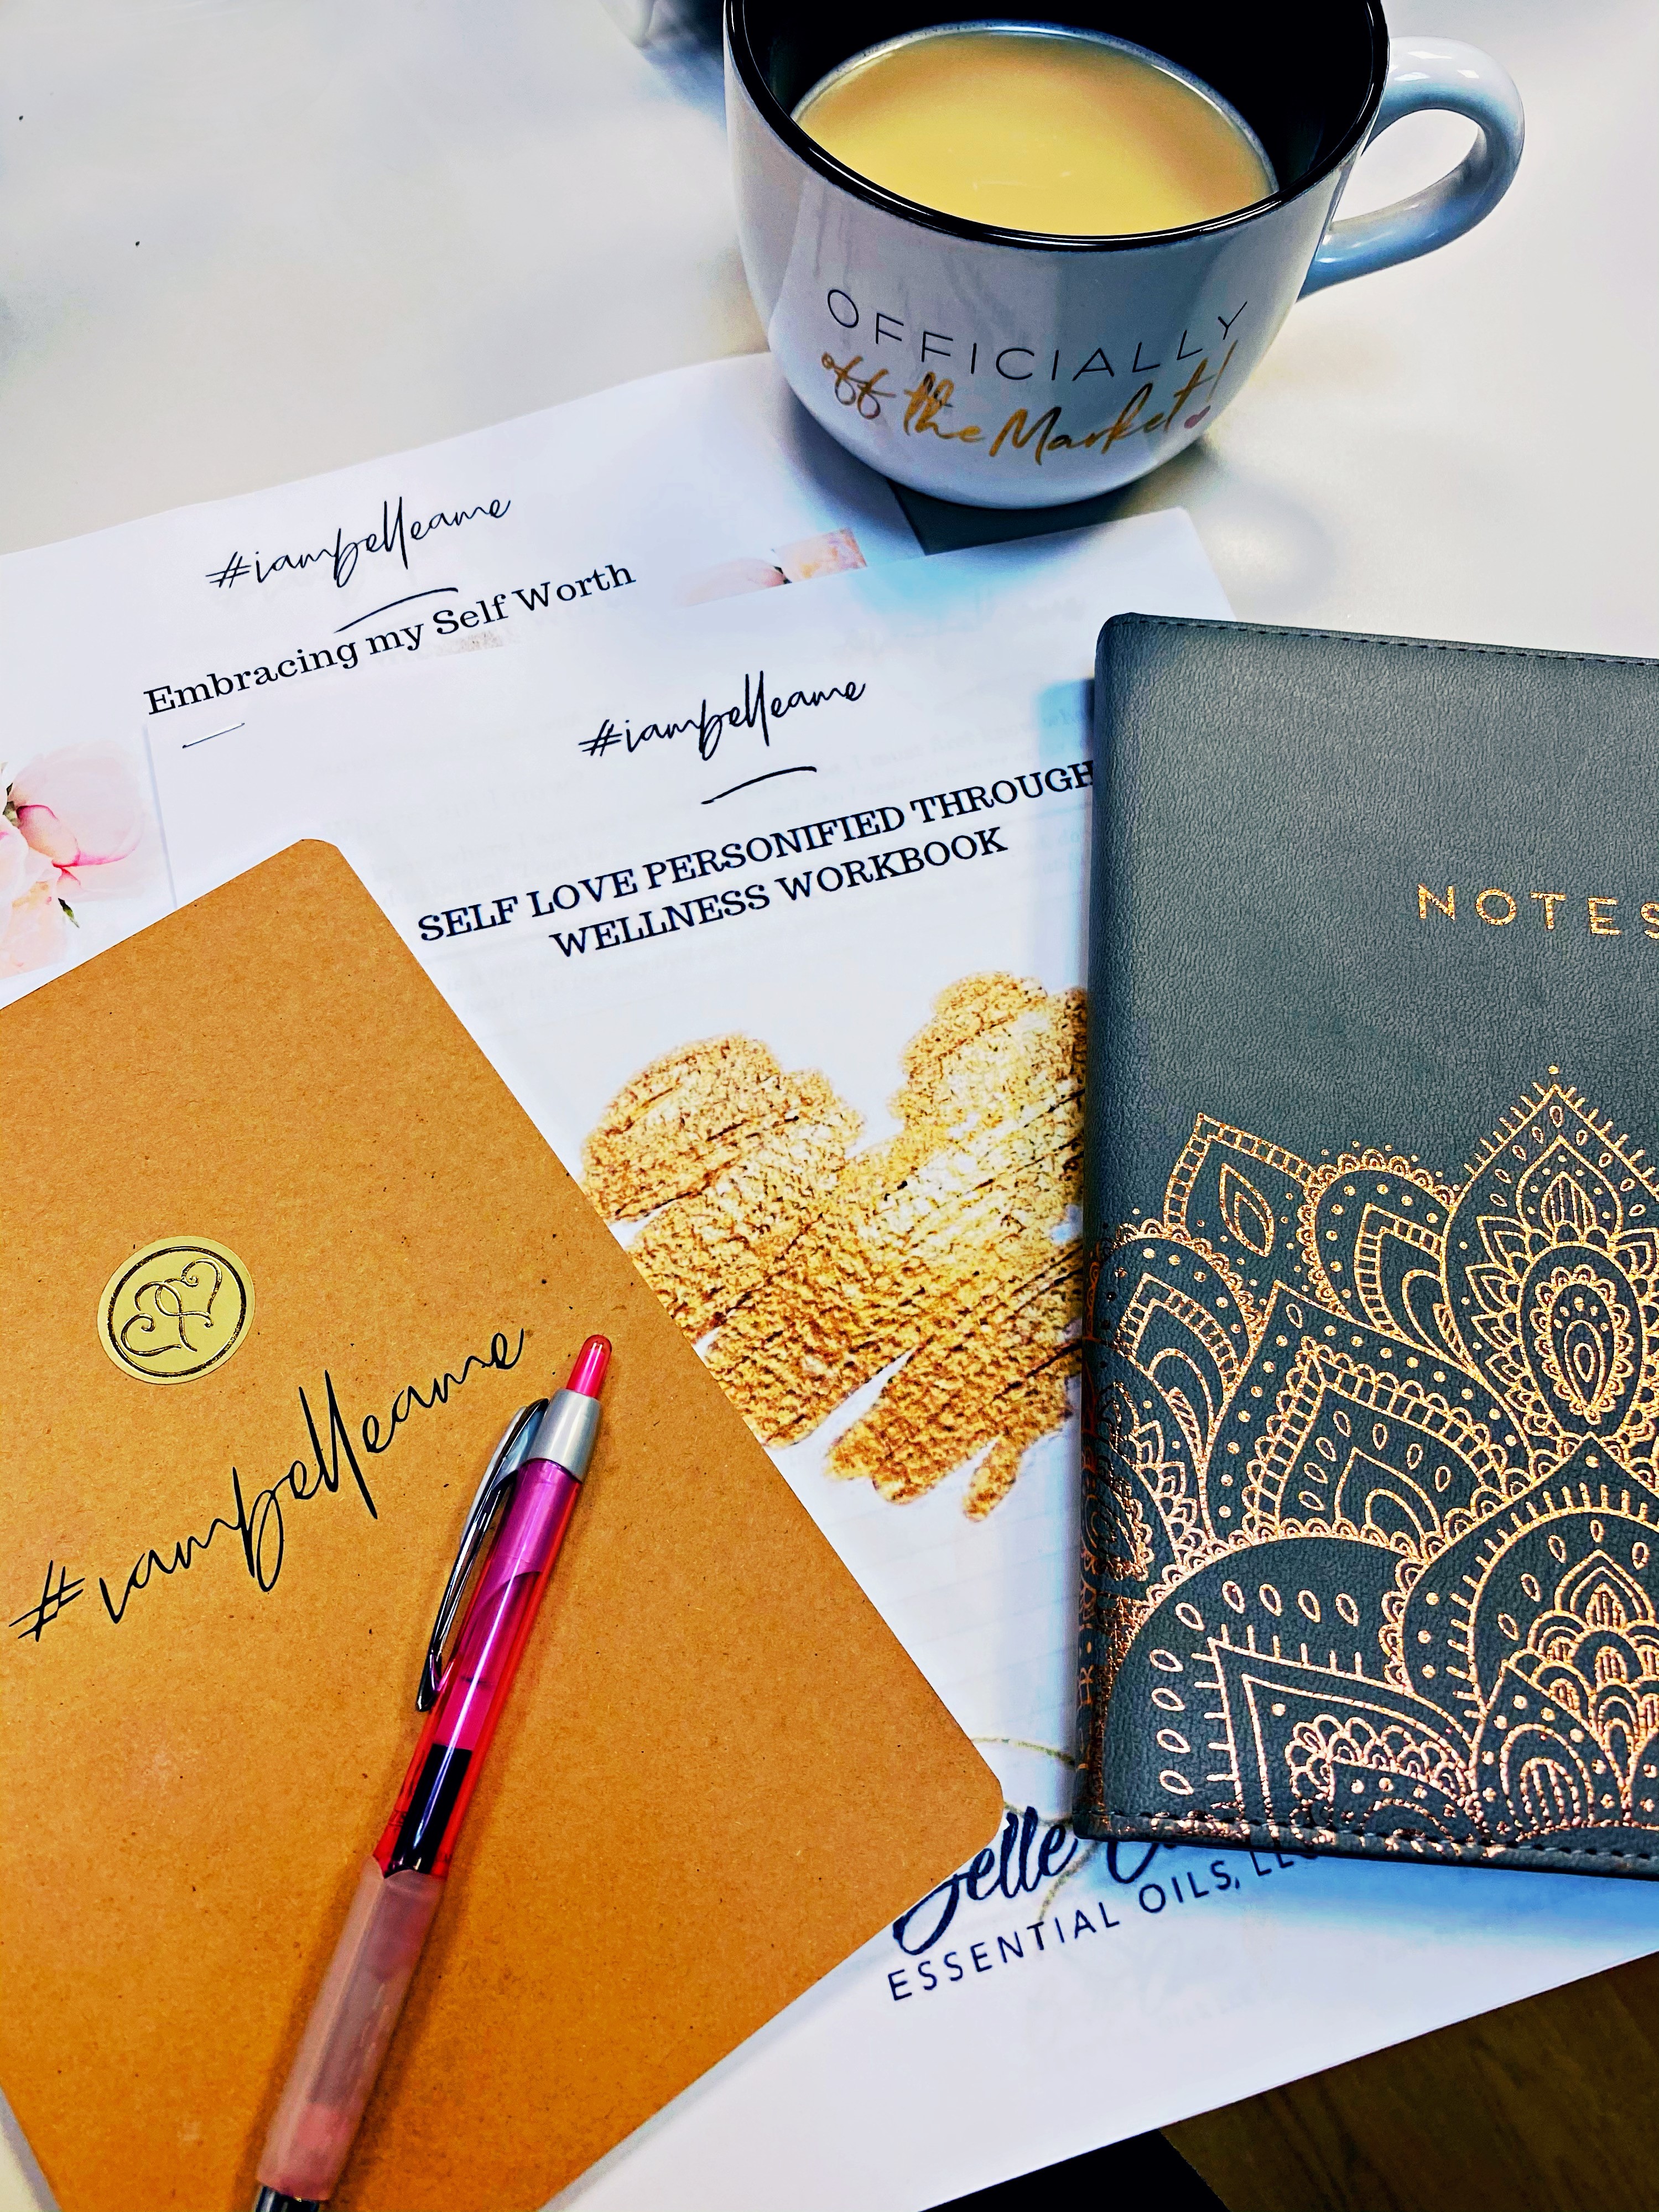 OFFICIALLY
off the Market!
#iambelleame
Embracing my Self Worth
#iambelleame
SELF LOVE PERSONIFIED THROUGH
WELLNESS WORKBOOK
NOTES
#iambelleame
Belle
ESSENTIAL OILS, LLC